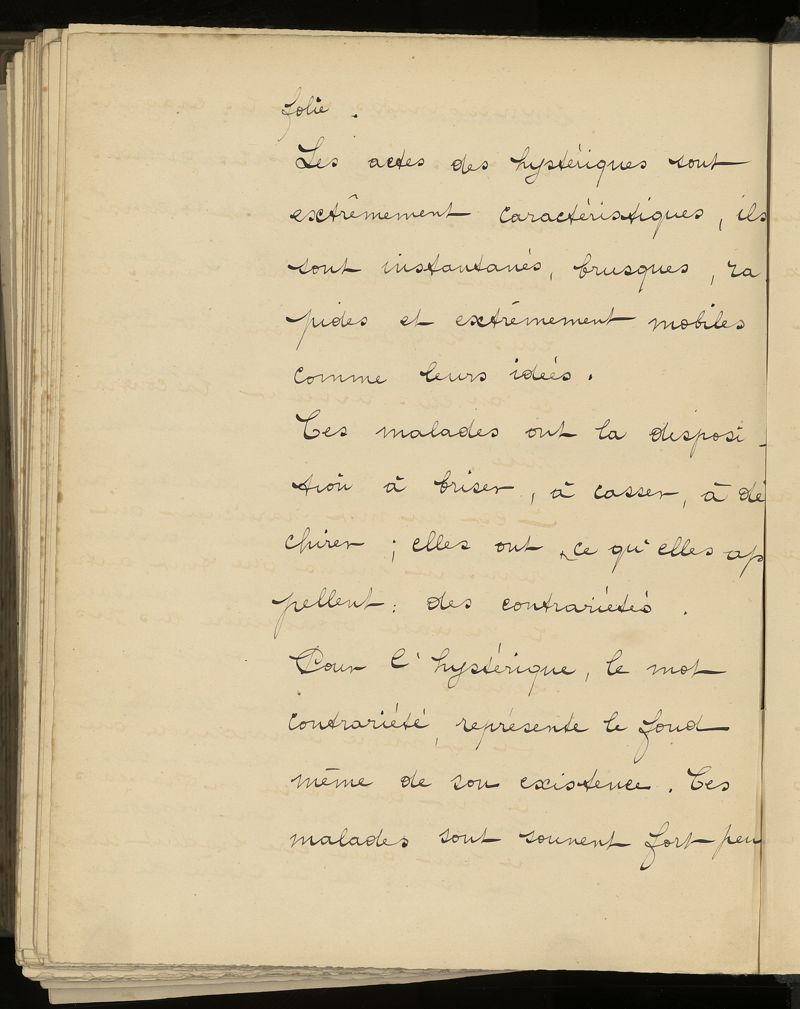 folie .
Les actes des hystériques sont
extrêmement caractéristiques, ils
sont instantanés, brusques, ra
pides et extrêmement mobiles
comme leurs idées.
Ces malades ont la disposi-
tion à briser, à casser, à dé
chirer ; elles ont ce qu'elles ap
pellent : des contrariétés .
Pour l'hystérique, le mot
contrariété, représente le fond
même de son existence. Ces
malades sont souvent fort peu